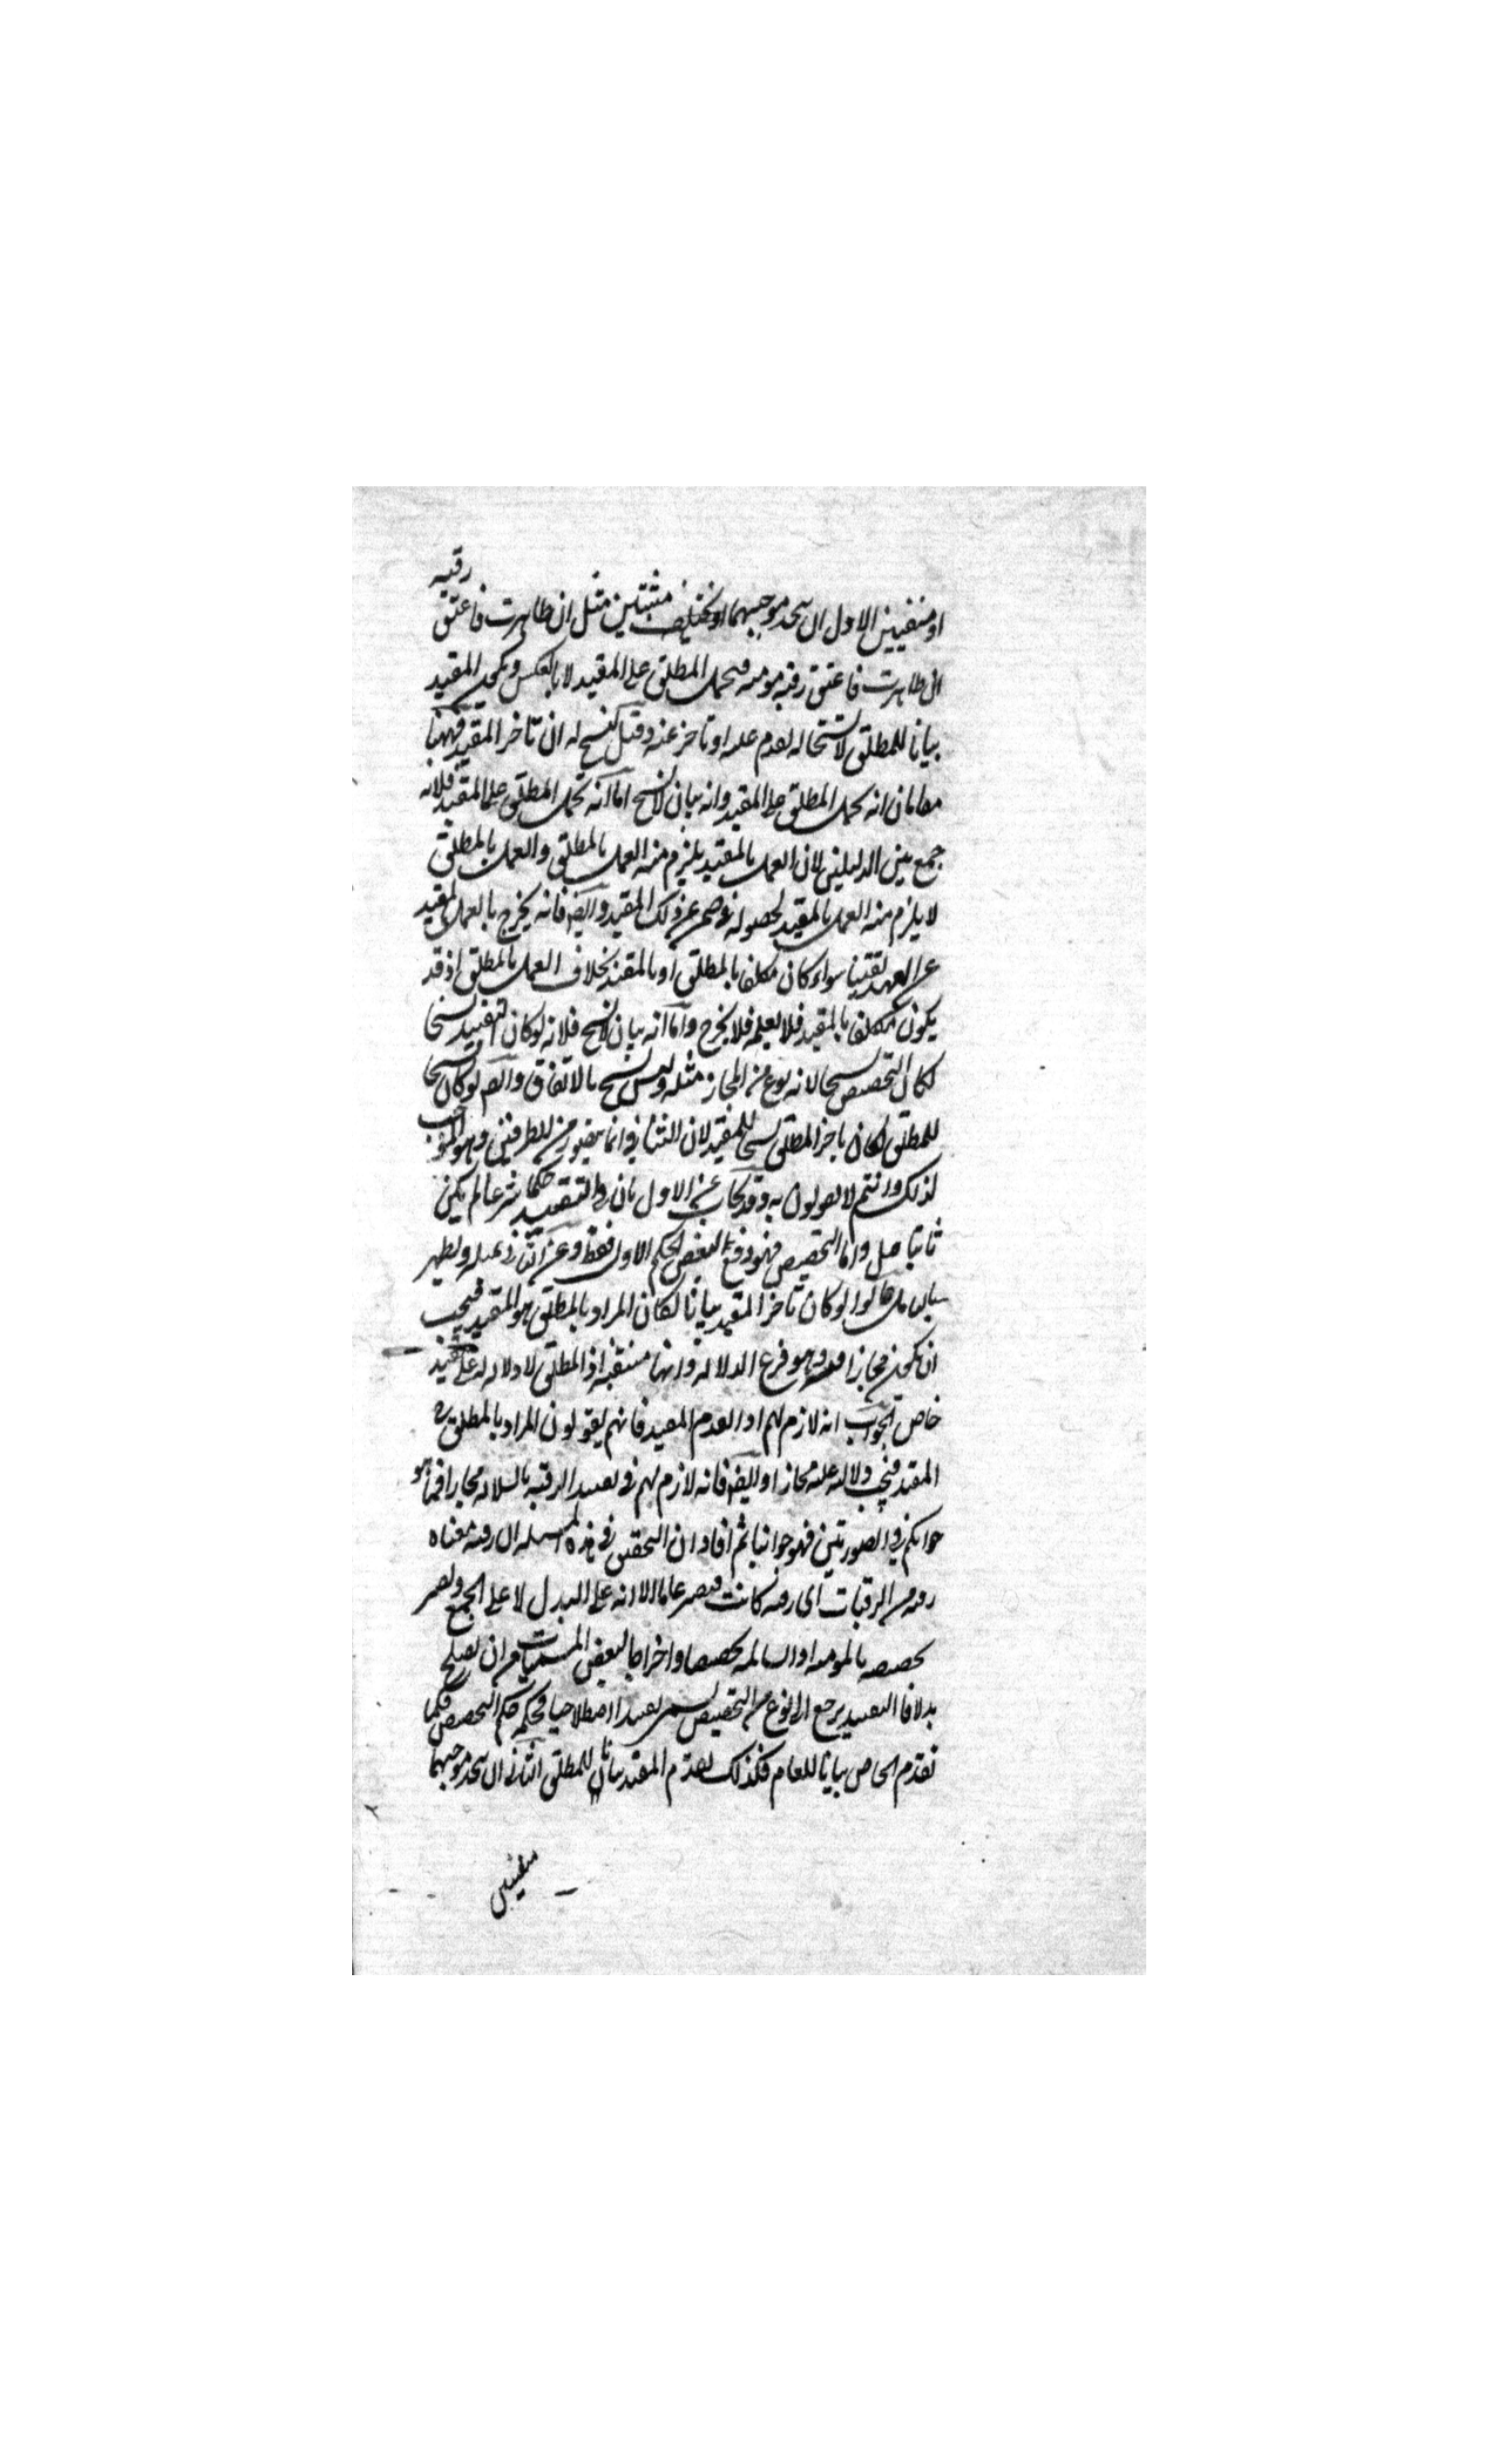 او منفيين الاول ان يتحد موجبهما او يختلف مثبتين مثل ان ظاهرت فاعتق رقبه
ان ظاهرت فاعتق رقبه مومنه فيحمل المطلق على المقيد لا بالعكس ويكون المقيد
بيانا للمطلق لا نسخا له تقدم عليه او تاخر عنه وقيل نسخ له ان تاخر المقيد فههنا
مقامان انه يحمل المطلق على المقيد وانه بيان لا نسخ اما انه يحمل المطلق على المقيد فلانه
جمع بين الدليلين لان العمل بالمقيد يلزم منه العمل بالمطلق والعمل بالمطلق
لا يلزم منه العمل بالمقيد لحصوله في ضمن غير ذلك المقيد وايضا فانه يخرج بالعمل بالمقيد
عن العهده يقينا سواء كان مكلفا بالمطلق او بالمقيد بخلاف العمل بالمطلق اذ قد
يكون مكلفا بالمقيد فلا يعلمه فلا يخرج واما انه بيان لا نسخ فلانه لو كان التقييد نسخا
لكان التخصيص نسخا لانه نوع من المجاز مثله وليس بنسخ بالاتفاق وايضا لو كان نسخا
للمطلق لكان تاخر المطلق نسخا للمقيد لان التنافي انما يتصور من الطرفين وهو الموجب
لذلك وانتم لا تقولون به وقد يجاب عن الاول بان في التقييد حكما شرعيا لم يكن
ثابتا قبل واما التخصيص فهو دفع لبعض الحكم الاول فقط وعن الثاني
قالوا لو كان تاخر المقيد بيانا لكان المراد بالمطلق هو المقيد فيجب
ان يكون مجازا فيه وهو فرع الدلالة وانها منتفية اذ المطلق لا دلاله له على مقيد
خاص الجواب انه لازم لهم اذا تقدم المقيد فانهم يقولون المراد بالمطلق هو
المقيد فيجب دلالته عليه مجازا وايضا فانه لازم لهم في تقييد الرقبه بالسلامه مجازا فما هو
جوابكم في الصورتين فهو جوابنا ثم افاد ان التحقيق في هذه المسله ان رقبه معناه
رقبه من الرقبات اي رقبه كانت فيصير عاما الا انه على البدل لا على الجمع ويصير
تخصيصه بالمومنه او السالمه تخصيصا واخراجا لبعض المسميات من ان يصلح
بدلا فالتقييد يرجع الى نوع من التخصيص يسمى تقييدا اصطلاحيا فحكمه حكم التخصيص فكما
تقدم الخاص بيانا للعام فكذلك تقدم المقيد بيان للمطلق الثاني ان يتحد موجبهما
منفيين